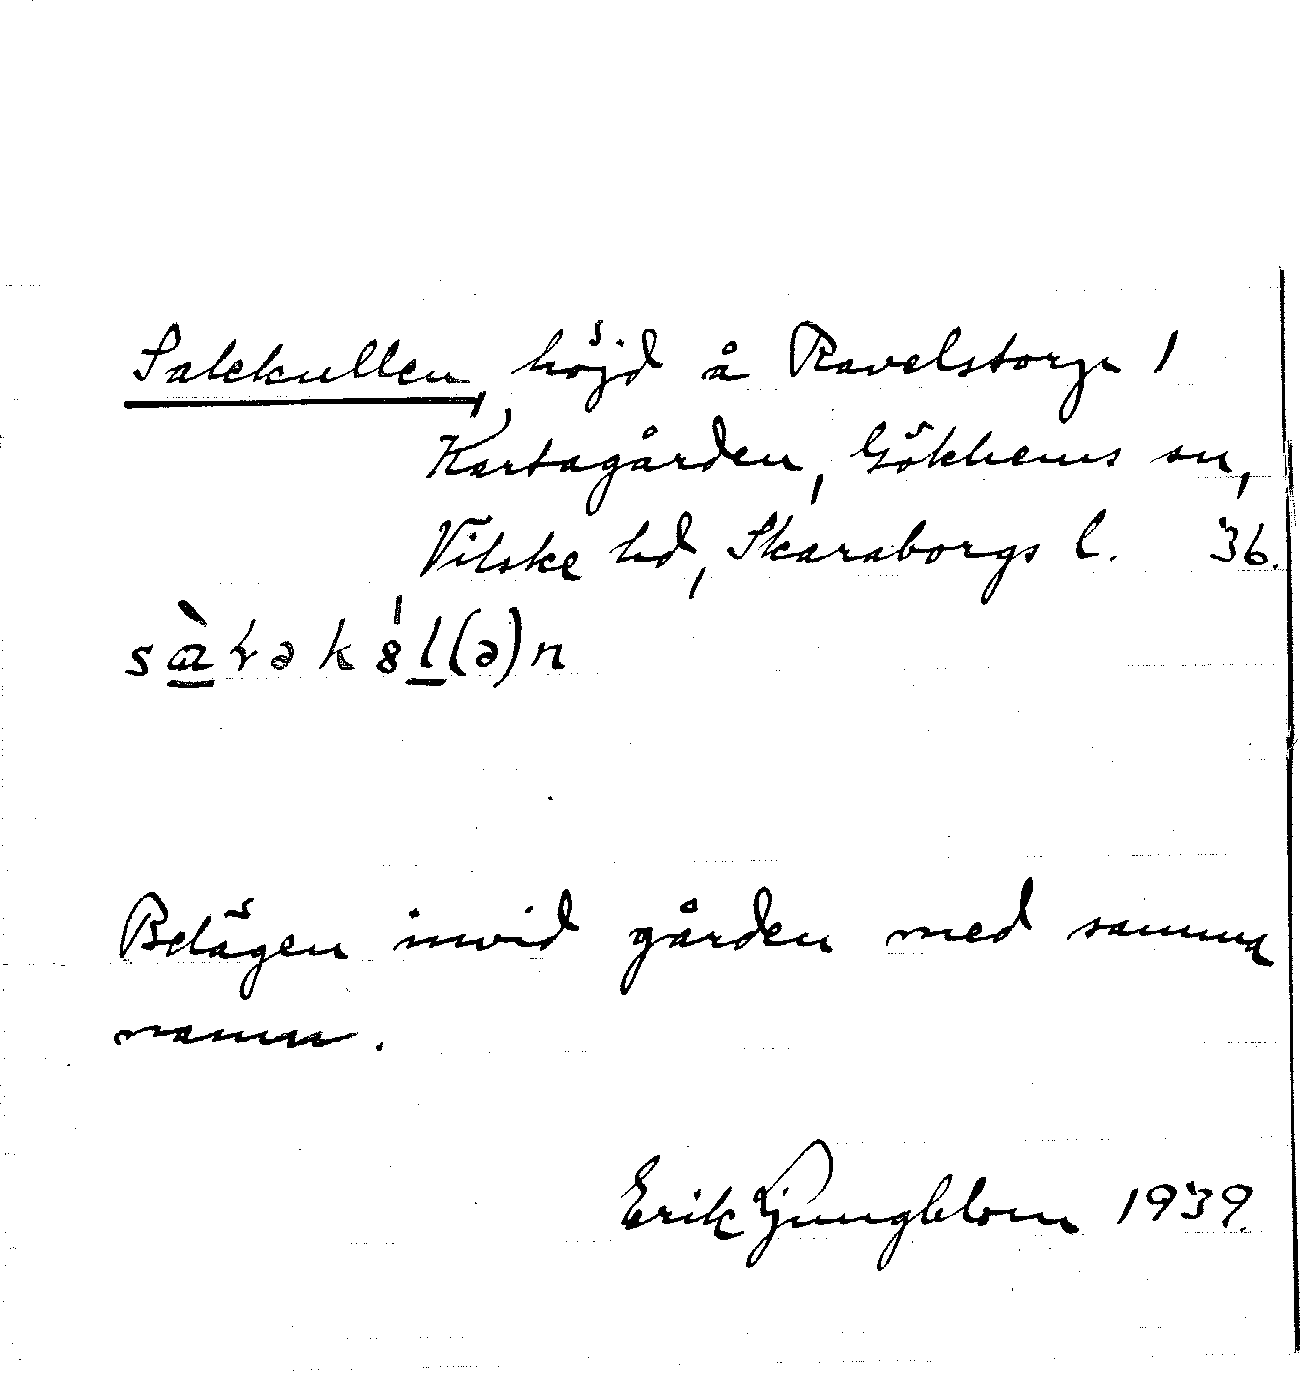 Salekullen, höjd å Ravelstorp 1
Kartagården, Gökhems sn,
Vilske hd, Skaraborgs l. 36.
Belägen invid gården med samma
namn.
Erik Ljungblom 1939.